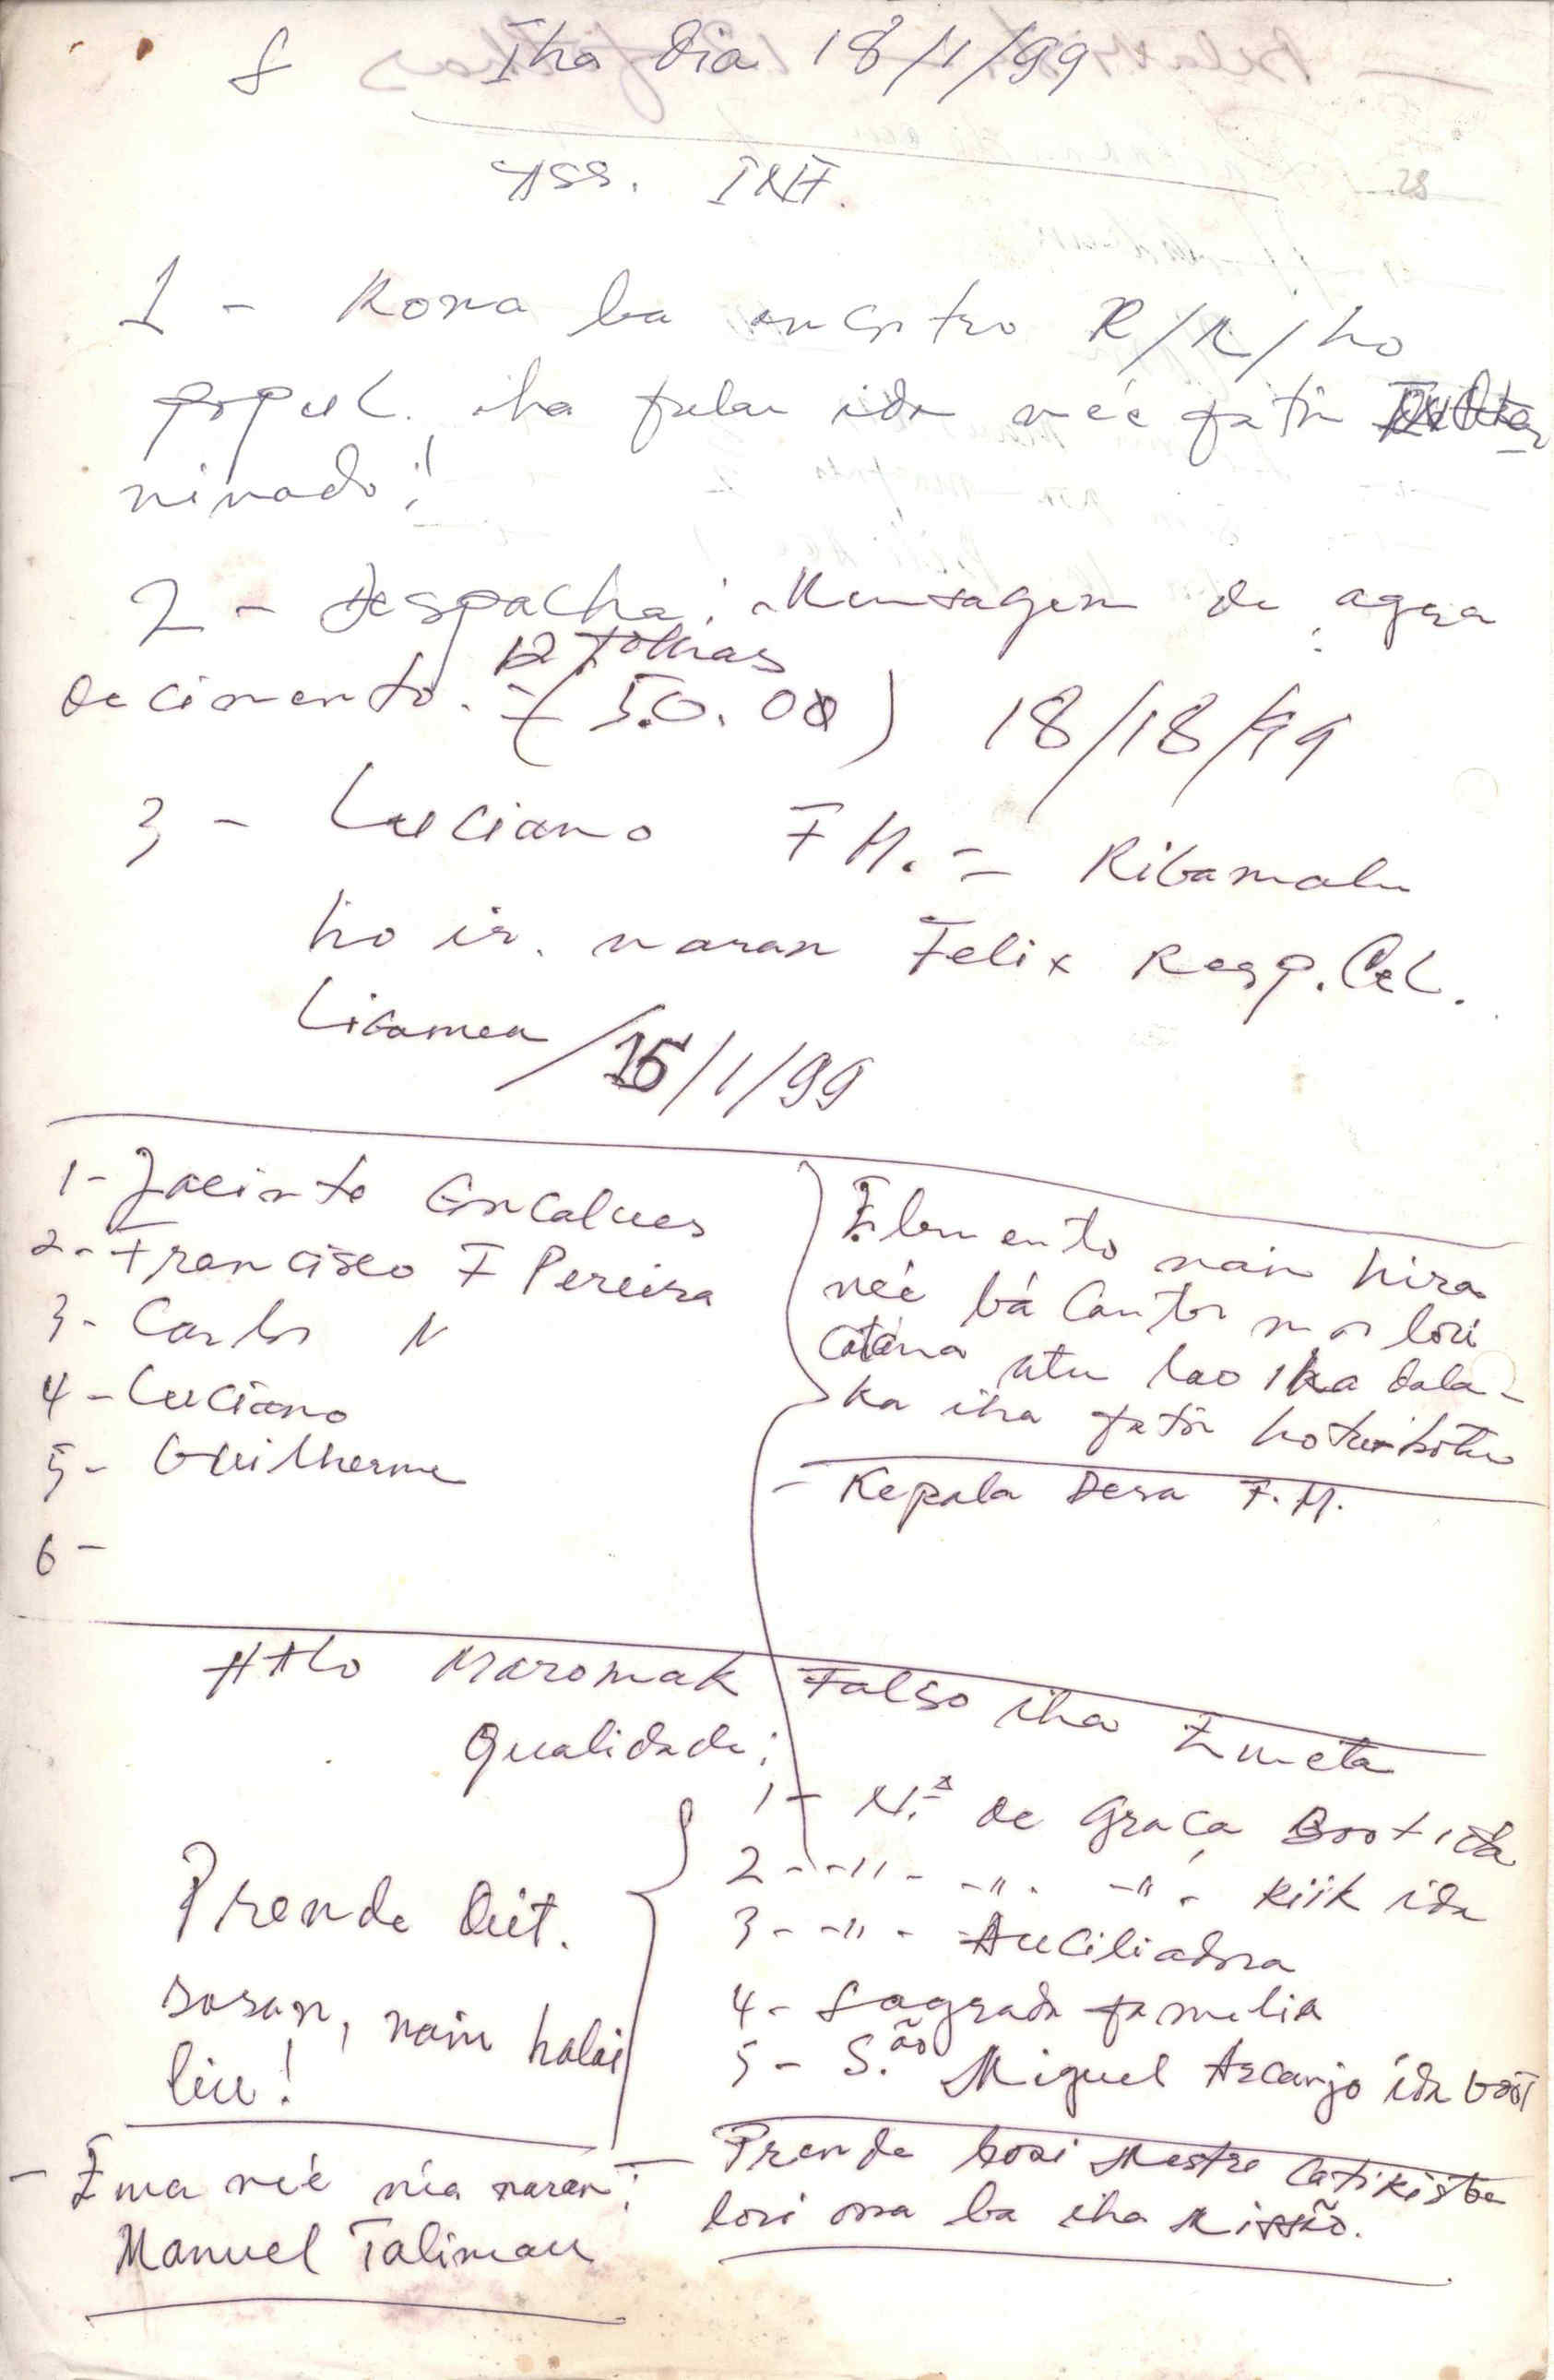 8 Iha dia 18/1/99
ASS. INF.
1 - Kona ba encontro R/R/ho
popul. iha fulan ida neé fatin
minado!
2 - Despacha: Mensagem de agra
decimento. - 12 folhas (5.0.00) 18/18/99
3 - Luciano F M. = Ribamalu
ho ir. naran Felix Resp. Cel.
Licamea /15/1/99
1- Jacinto Goncalves
2- Francisco F Pereira
3- Carlos N
4- Luciano
5- Guilherme
6-
Elemento nain hira
neé bá Cantor mos lori
Catana atu lao iha dala-
ka iha fatin hotu-hotu
- Kepala Desa F.M.
HALo Maromak Falso iha Ermeta
Qualidade:
1- N.ª de Graça Boot ida
2- -"- -"- -"- Kiik ida
3- -"- Auciliadora
4- Sagrada familia
5- S.ão Miguel Arcanjo ida boot
Prende Deit.
sosan, nain halai
liu!
- Ema neé nia naran:
Manuel Talimau
- Prende hosi Mestre Catikista
lori ona ba iha Missão.